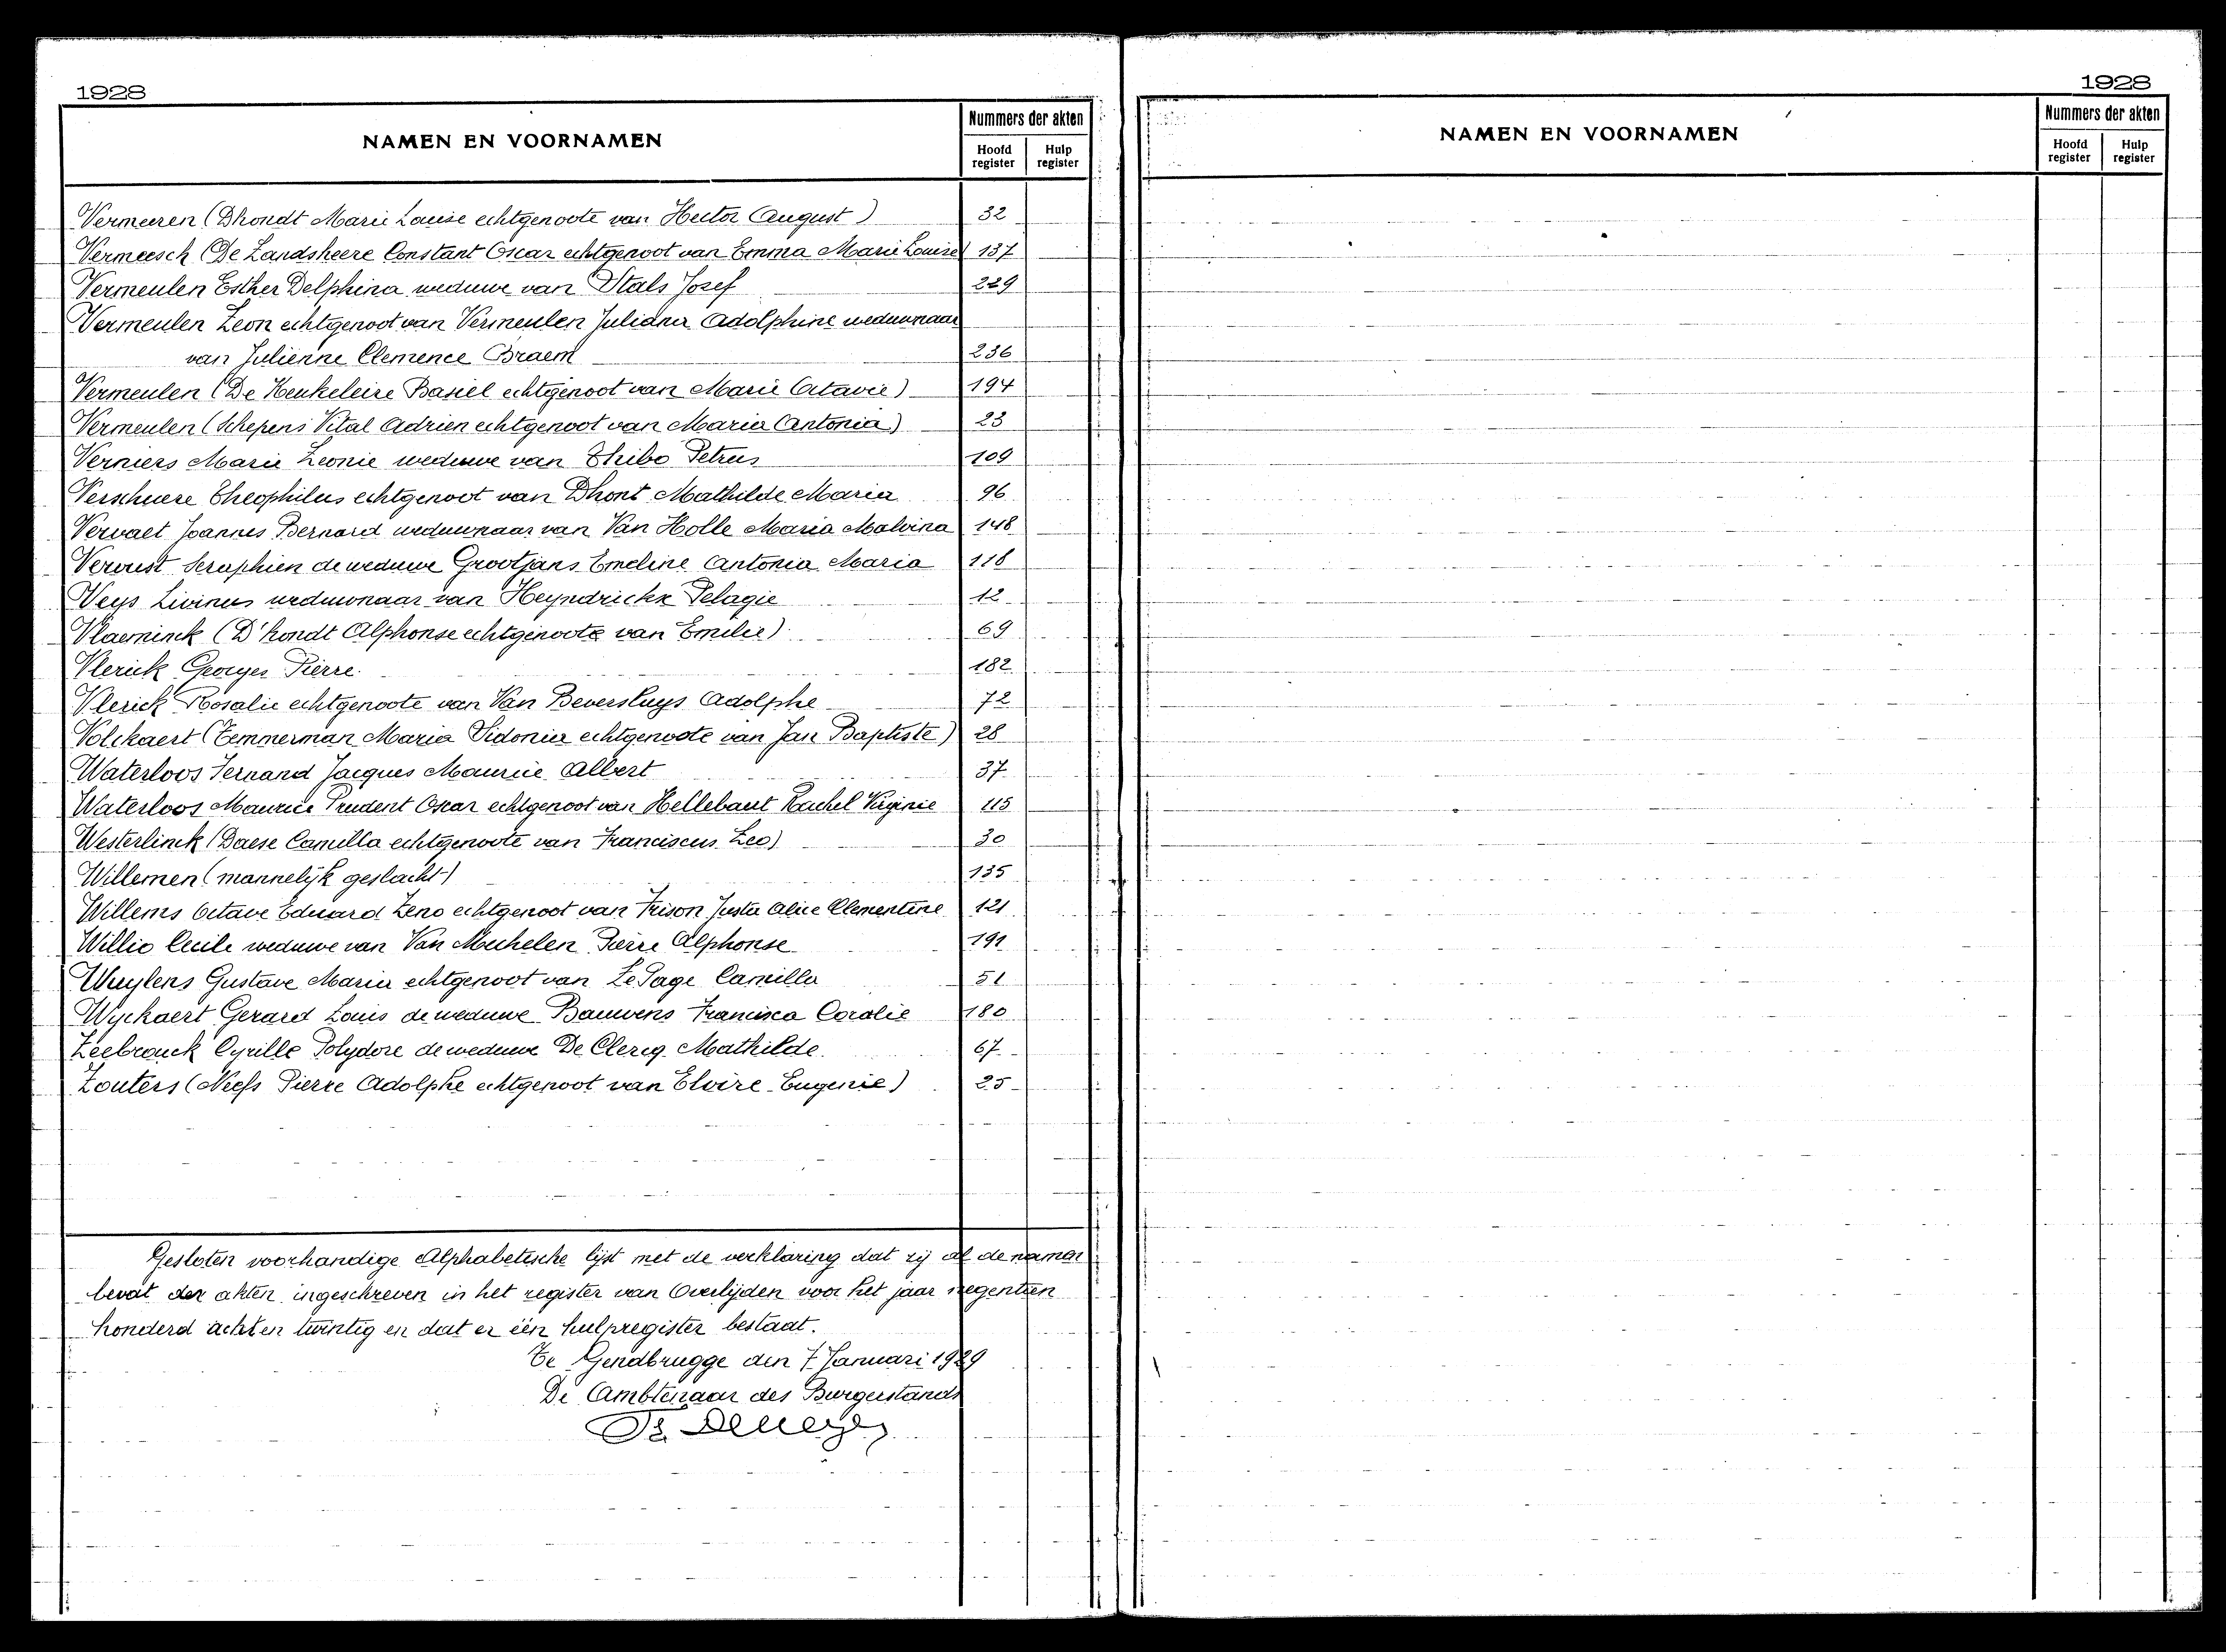 1928
NAMEN EN VOORNAMEN
Nummers der akten
Hoofd register
Hulp register
Vermeeren (Dhondt Marie Louise echtgenoote van Hector August) 32
Vermeesch (De Landsheere Constant Oscar echtgenoot van Emma Marie Louise) 137
Vermeulen Esther Delphina weduwe van Stals Josef 229
Vermeulen Leon echtgenoot van Vermeulen Juliana Adolphine weduwnaar
van Julienne Clemence Braem 236
Vermeulen (De Keukeleire Basiel echtgenoot van Marie Octavie) 194
Vermeulen (Schepens Vital Adrien echtgenoot van Maria Antonia) 23
Verniers Marie Leonie weduwe van Thibo Petrus 109
Verschuere Theophilus echtgenoot van Dhont Mathilde Maria 96
Vervaet Joannes Bernard weduwnaar van Van Holle Maria Malvina 148
Vervust Seraphien de weduwe Grootjans Emeline Antonia Maria 118
Veys Livinus weduwnaar van Heyndrickx Pelagie 12
Vlaeminck (D'hondt Alphonse echtgenoote van Emilie) 69
Vlerick Georges Pierre 182
Vlerick Rosalie echtgenoote van Van Beversluys Adolphe 72
Volckaert (Temmerman Maria Sidonia echtgenoote van Jan Baptiste) 28
Waterloos Fernand Jacques Maurice Albert 37
Waterloos Maurice Prudent Oscar echtgenoot van Hellebaut Rachel Virginie 115
Westerlinck (Daese Camilla echtgenoote van Franciscus Leo) 30
Willemen (mannelijk geslacht) 135
Willems Octave Eduard Zeno echtgenoot van Frison Justa Alice Clementine 121
Willio Cecile weduwe van Van Mechelen Pierre Alphonse 191
Wuylens Gustave Maria echtgenoot van Le Page Camilla 51
Wyckaert Gerard Louis de weduwe Bauwens Francisca Coralie 180
Zeebrouck Cyrille Polydore de weduwe De Clercq Mathilde 67
Zouters (Neefs Pierre Adolphe echtgenoot van Elvire Eugenie) 25
Gesloten voorhandige Alphabetische lijst met de verklaring dat zij al de namen
bevat der akten ingeschreven in het register van Overlijden voor het jaar negentien
honderd acht en twintig en dat er één hulpregister bestaat.
Te Gendbrugge den 7 Januari 1929
De Ambtenaar des Burgerstands
1928
NAMEN EN VOORNAMEN
Nummers der akten
Hoofd register
Hulp register